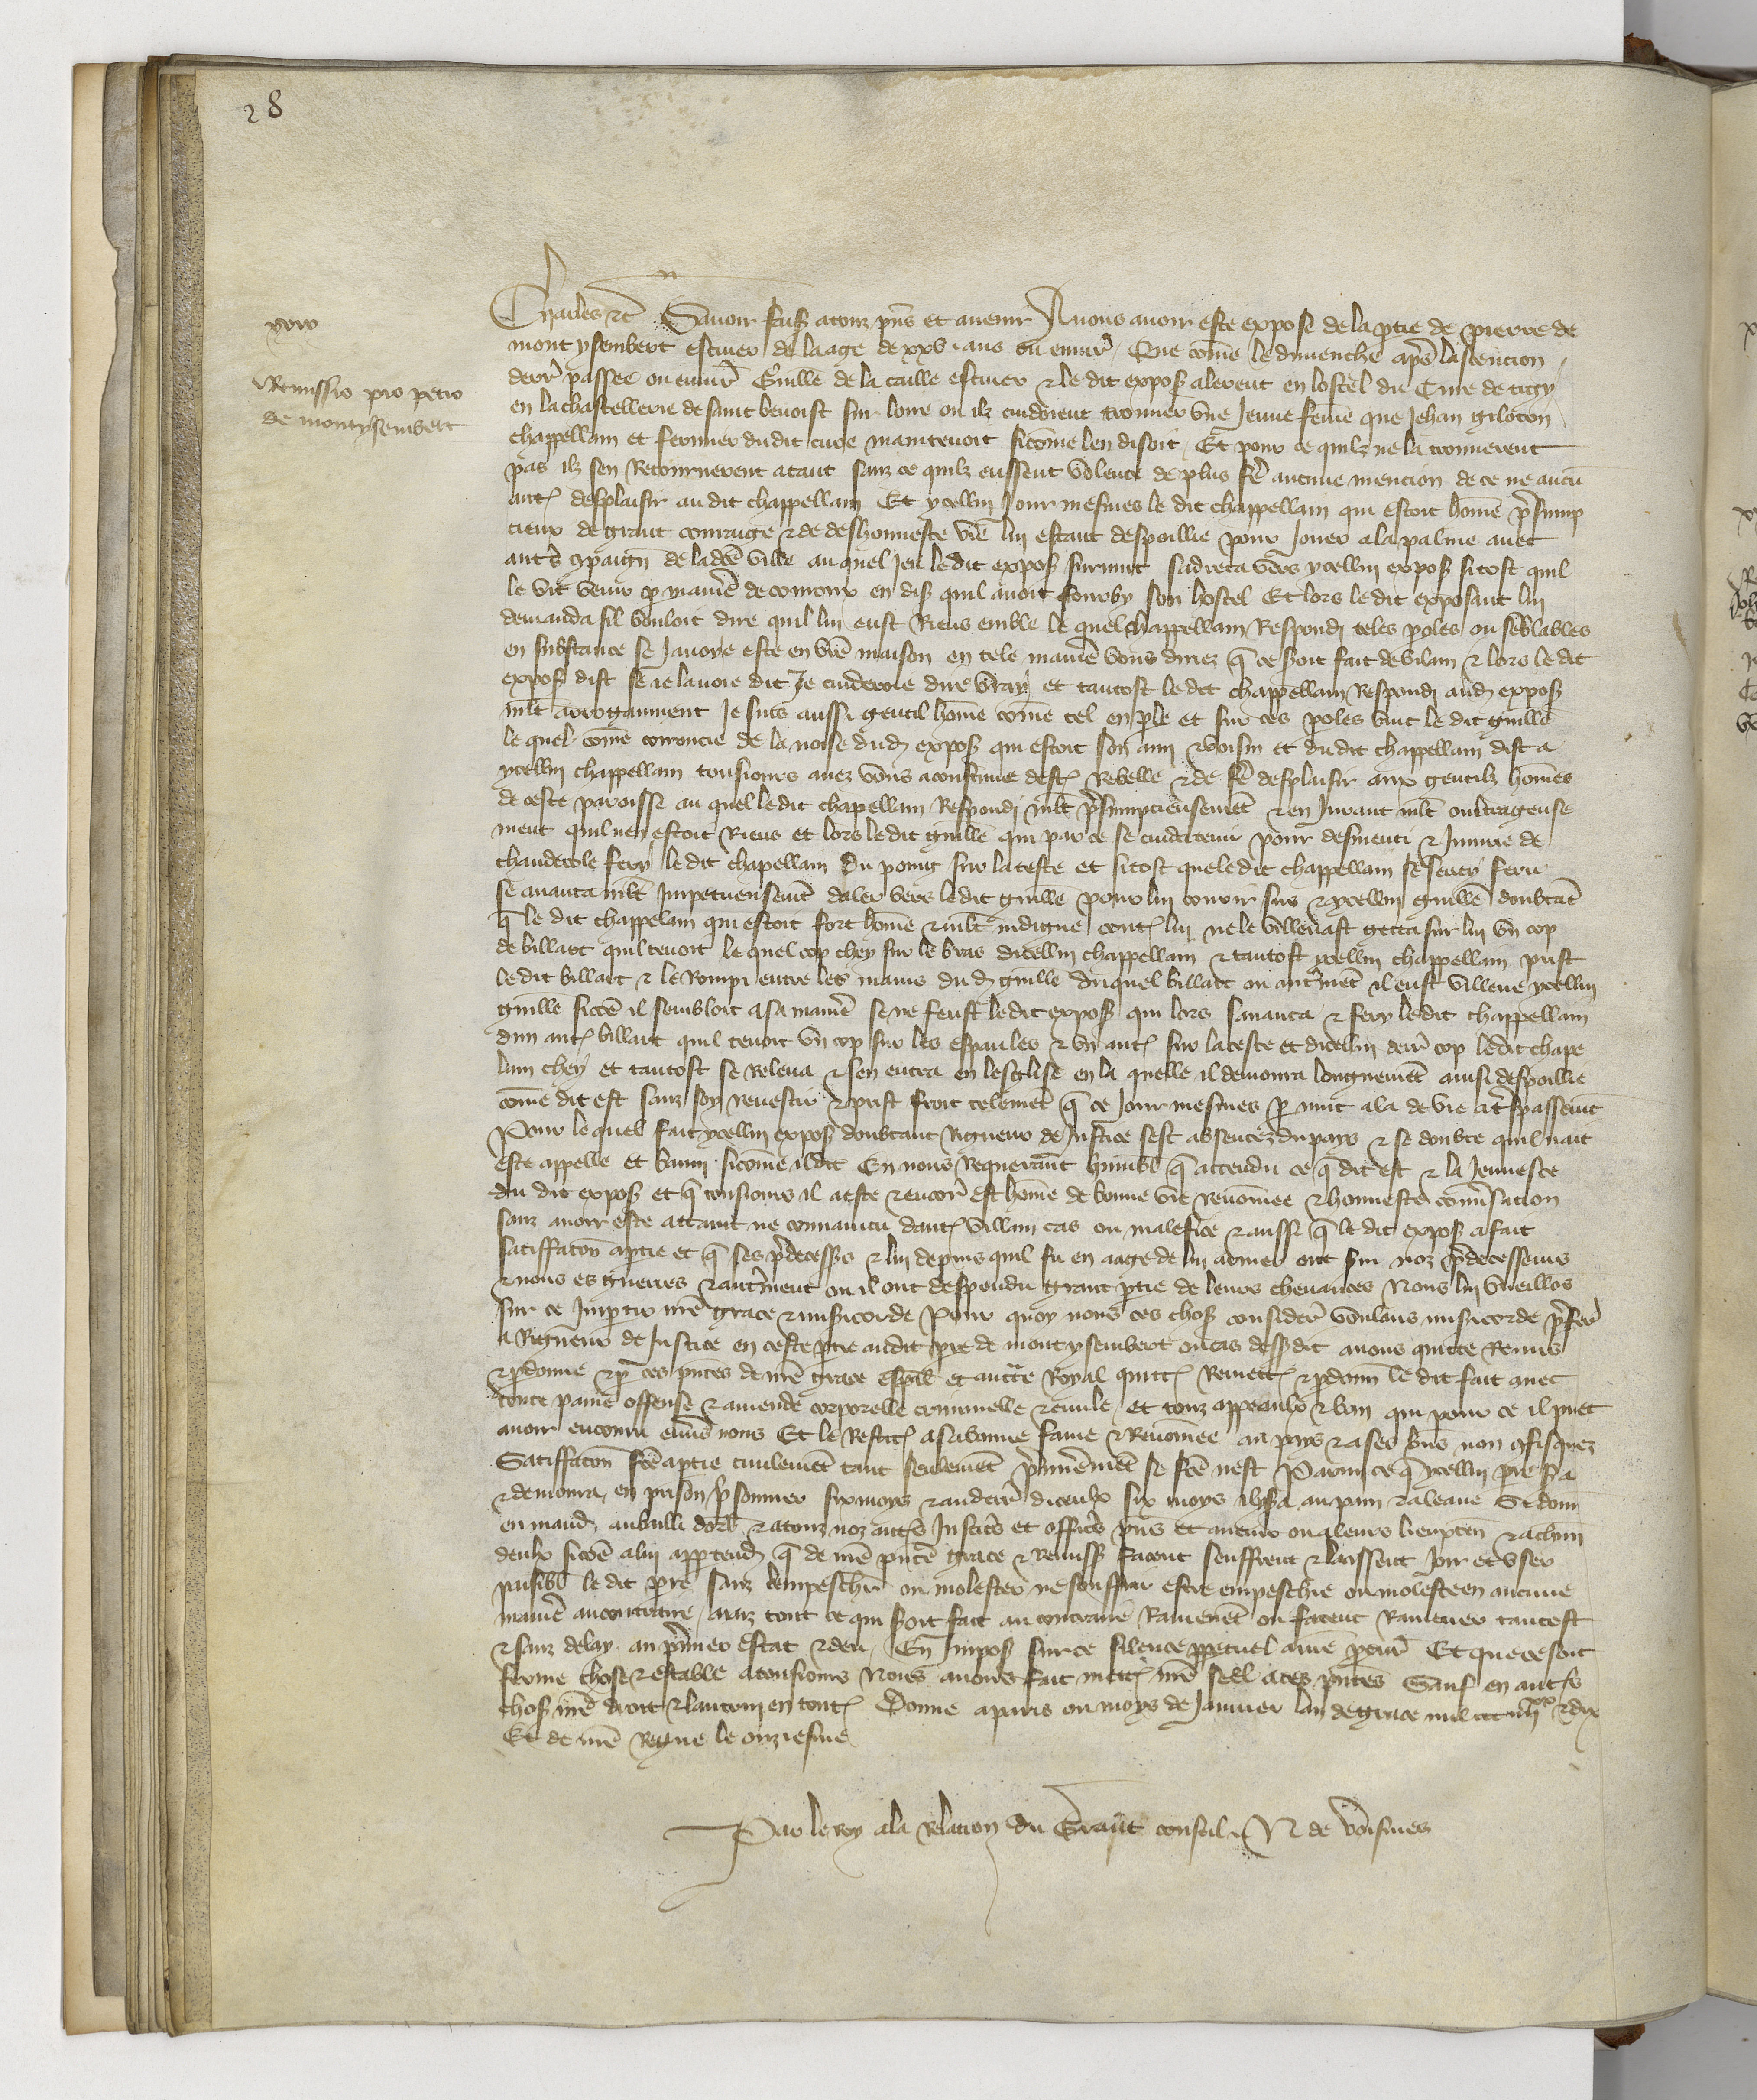 28
xxix
Remissio pro petro
de montysembert
Charles etc Savoir faisõs a touz pñs et avenir A nous avoir este expose de la ptie de pierre de
montysembert escuier de laage de xxv ans ou envirõ Que cõme le dimenche apẽs lascencion
derr passee ou envirõ Guille de la caille escuier et le dit expost alerent en lostel du Cure de tigy
en la chastellerie de saint benoist sur loire ou ilz cuidoient trouver vne Jeune feme que Jehan giloton
chappellain et fermier dudit cure maintenoit sicõme len disoit Et pour ce quilz ne la trouverent
pas ilz sen Retournerent atant sanz ce quilz eussent volente de plus fẽ aucune mencion de ce ne aucũ
aut desplaisir au dit chappellain Et ycellui Jour mesmes le dit chappellain qui estoit hõme psump
cieux de grant courage et de deshonneste vie lui estant despoillie pour Jouer a la palme avec
autẽs cpaignõs de ladcẽ ville auquel Jeu le dit expost survint sadreca vers ycellui expost si tost quil
le vit venir p maniẽ de courroux en dist quil avoit fourby son hostel Et lors le dit exposant lui
demanda sil vouloit dire quil lui eust Riens emble le quel chappellain Respondi teles poles ou seblables
en substance se Javoye este en vrẽ maison en tele maniẽ vous diriez q ce seroit fait de vilain et lors le dit
expost dist se ie lavoie dit Je cuideroie dire vray et tantost le dit chappellain Respondi aud expost
mlt arroganment Je suis aussi gentil hõme cõme tel en ple et sur ces poles vint le dit guille
le quel cõme courroucie de la noise dud expost qui estoit son ami et voisin et dudit chappellain dist a
ycellui chappellain tousiours avez vous acoustume dest Rebelle et de fẽ desplaisir aux gentilz hõmes
de ceste paroisse au quel le dit chapellain Respondi mlt psumpcieusemẽt et en Jurant mlt oultrageuse
ment quil nen estoit Riens et lors le dit guille qui par ce se cuida tenir pour desmenti et Jniurie de
chaudecole fery le dit chapellain du poing sur la teste et si tost que le dit chappellain se senty feru
se avanca mlt Jmpetueusemẽt daler vers le dit guille pour lui courir sus et ycellui guille doubtãt
q le dit chappelain qui estoit fort hõme et mlt indigne cont lui ne le villenast getta sur lui vn cop
de billart quil tenoit le quel cop chey sur le bras dicellui chappellain et tantost ycellui chappellain prist
le dit billart et le Rompi entre les mains dud guille duquel billart ou autmẽt il eust villene ycellui
guille sicõe il sembloit a sa maniẽ se ne feust le dit expost qui lors savanca et fery le dit chappellain
dun aut billart quil tenoit vn cop sur les espaules et vn aut sur la teste et dicellui derr cop le dit chape
lain chey et tantost se Releva et sen entra en lesglise en la quelle il demoura longuemẽt ainsi despoillie
cõme dit est sanz soy revestir et prist froit telemẽt q ce Jour mesmes p nuit ala de vie a trespassemẽt
Pour le quel fait ycellui expost doubtant Rigueur de Justice sest absentez du pays et se doubte quil nait
este appelle et banni sicõme il dit En nous Requerant humblẽ q attendu ce q dit est et la Jeunesce
du dit expost et q tousiours il a este et encor est hõme de bonne vie renõmee et honneste convsacion
sanz avoir este attaint ne convaincu daut villain cas ou malefice et aussi q le dit expost a fait
satiffacõn a ptie et q ses pdecesseurs et lui depuis quil fu en aage de lui armer ont svi noz pdecesseurs
et nous es guerres et autment ou il ont despendu grant ptie de leurs chevances Nous lui vueillõs
sur ce Jmptir nrẽ grace et misicorde Pour quoy nous ces choses considereẽs voulans misicorde pferer
a Rigueur de Justice en ceste ptie audit pre de montysembert ou cas dessdit avons quitte Remis
et pdonne et p ces pntes de nrẽ grace espãl et auctte Royal quitt Remett et pdonn le dit fait avec
toute paine offense et amende corporelle criminelle et civile et touz appeaulx et ban qui pour ce il puet
avoir encouru envs nous Et le Restit a sa bonne fame et Renõmee au pays et a ses bns non cfisquez
Satiffacõn fcẽ a ptie civilemẽt tant seulemẽt pmierement se fcẽ nest Parmi ce q ycellui pre sera
et demoura en prison psonnier six moys et au derr diceulx six moys il sera au pain et a leaue Si donn
en mand au bailli dorl et a touz noz autẽs Justicẽs et officẽs pñs et avenir ou a leurs lieuxten et a chũn
deulx sicõe a lui apptend q de nrẽ pntẽ grace et Remiss facent seuffrent et laissent Joir et vser
paisiblẽ le dit pre sanz lempeschier ou molester ne souffrir estre empeschie ou moleste en aucune
maniẽ au contraire ainz tout ce qui seroit fait au contraire Ramenẽt ou facent Ramener tantost
et sanz delay au pmier estat et deu En Jmpost sur ce silence ppetuel a nrẽ pcur Et que ce soit
ferme chose et estable a tousiours Nous avons fait mett nrẽ seel a ces pntes Sauf en autẽs
choses nrẽ droit et lautruy en tout Donne a paris ou moys de Janvier lan de grace mil ccc iiijxx et dix
Et de nrẽ Regne le onziesme
Par le roy a la Relacion du Grant conseil N de voisines